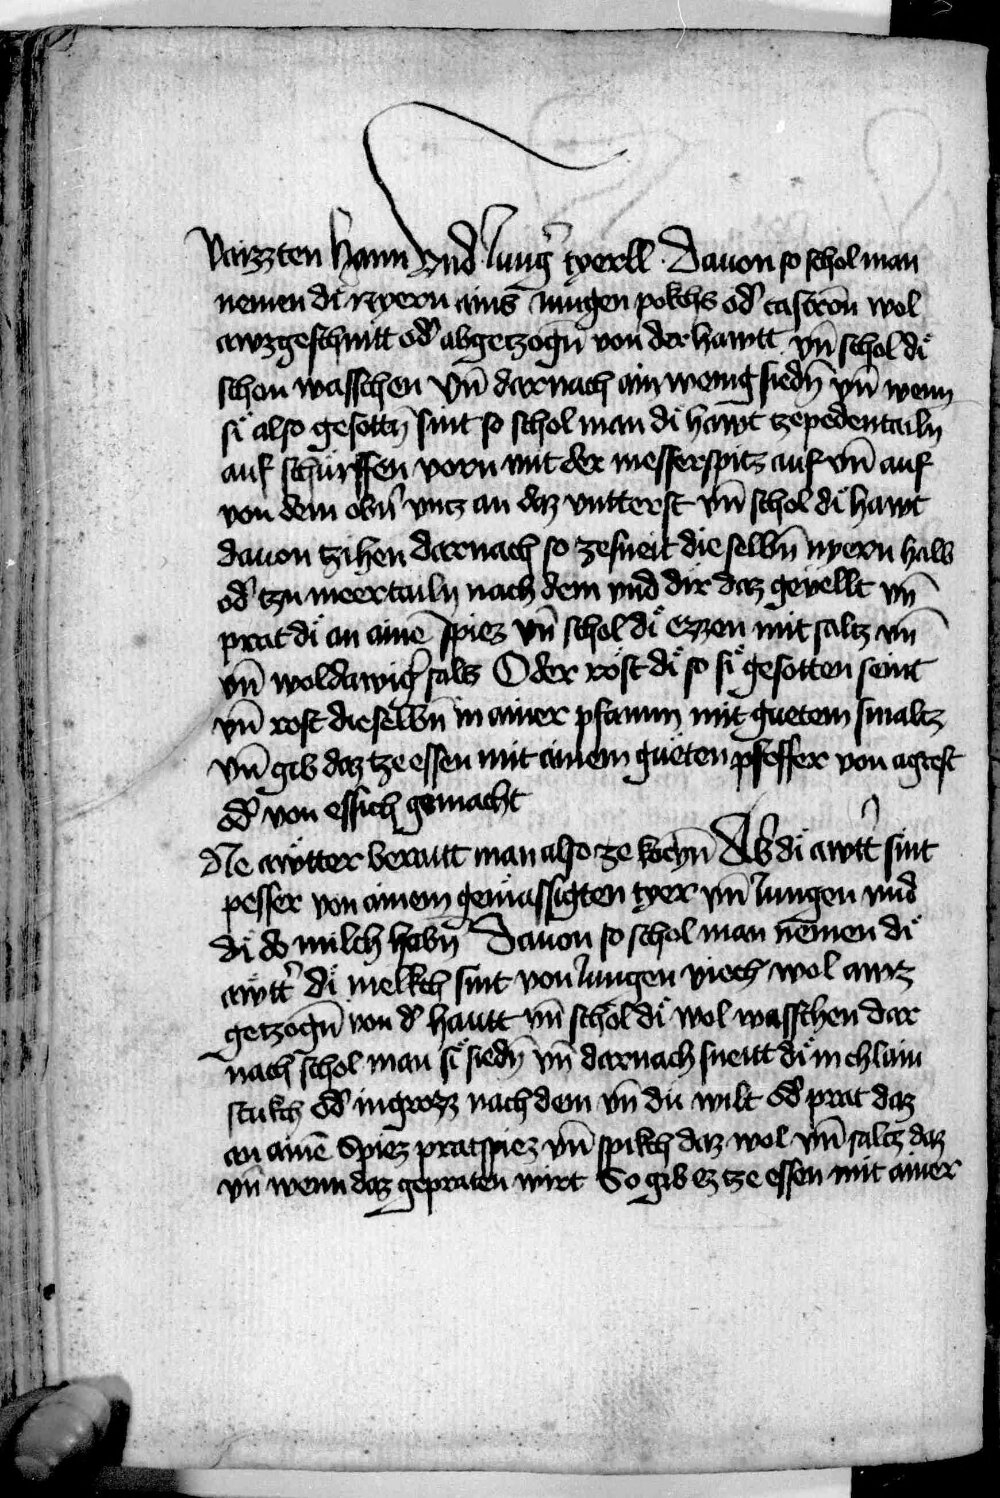 vaizzten hann vnd Iung̉ tyerll · Dauon so schol man
nemen di nyern ains iungen pokchs od̉ castron̄ wol
awzgeschnitt od̉ abgetzogn̄ von der hawtt vn̄ schol dÿ
schon wasschen vn̄ darnach ain wenig siedn̄ vn̄ wenn
sy also gesottn̄ sint so schol man di hawt tzepedentailn
auf schürffen vorn mit der messerspitz auf vn̄ auf
von dem obn̄ vntz an daz vntterst vn̄ schol di hawt
dauon tzihen darnach so zesneit die selbn̄ nyern halb
od̉ tzu meertailn nach dem vnd dir daz geuellt vn̄
prat di an ainē spiez vn̄ schol di ezzen mit saltz vn̄
vn̄ woldawig̉ salß Oder röst di so si gesotten seint
vn̄ rost dieselbn̄ in ainer pfann mit guetem smaltz
vn̄ gib daz tze essen mit ainem güeten pfeffer von agrest
od̉ von essich gemacht
Die awtter berautt man also ze kochn̄ Ab̉ di awtt̉ sint
pesser von ainem gemässigten tyer vn̄ Iungen vnd
di do milch habn̄ Dauon so schol man nemen di
awtt̉ di melkch sint von Iungen viech wol awz
getzogn̄ von d̉ hautt vn̄ schol di wol wasschen dar
nach schol man si siedn̄ vn̄ darnach sneitt di in chlain
stukch od̉ in grozz nach dem vn̄ du wilt od̉ prat daz
an ainē Spiez pratspiez vn̄ spikch daz wol vn̄ saltz daz
vn̄ wenn daz gepraten wirt So gib ez tze essen mit ainer